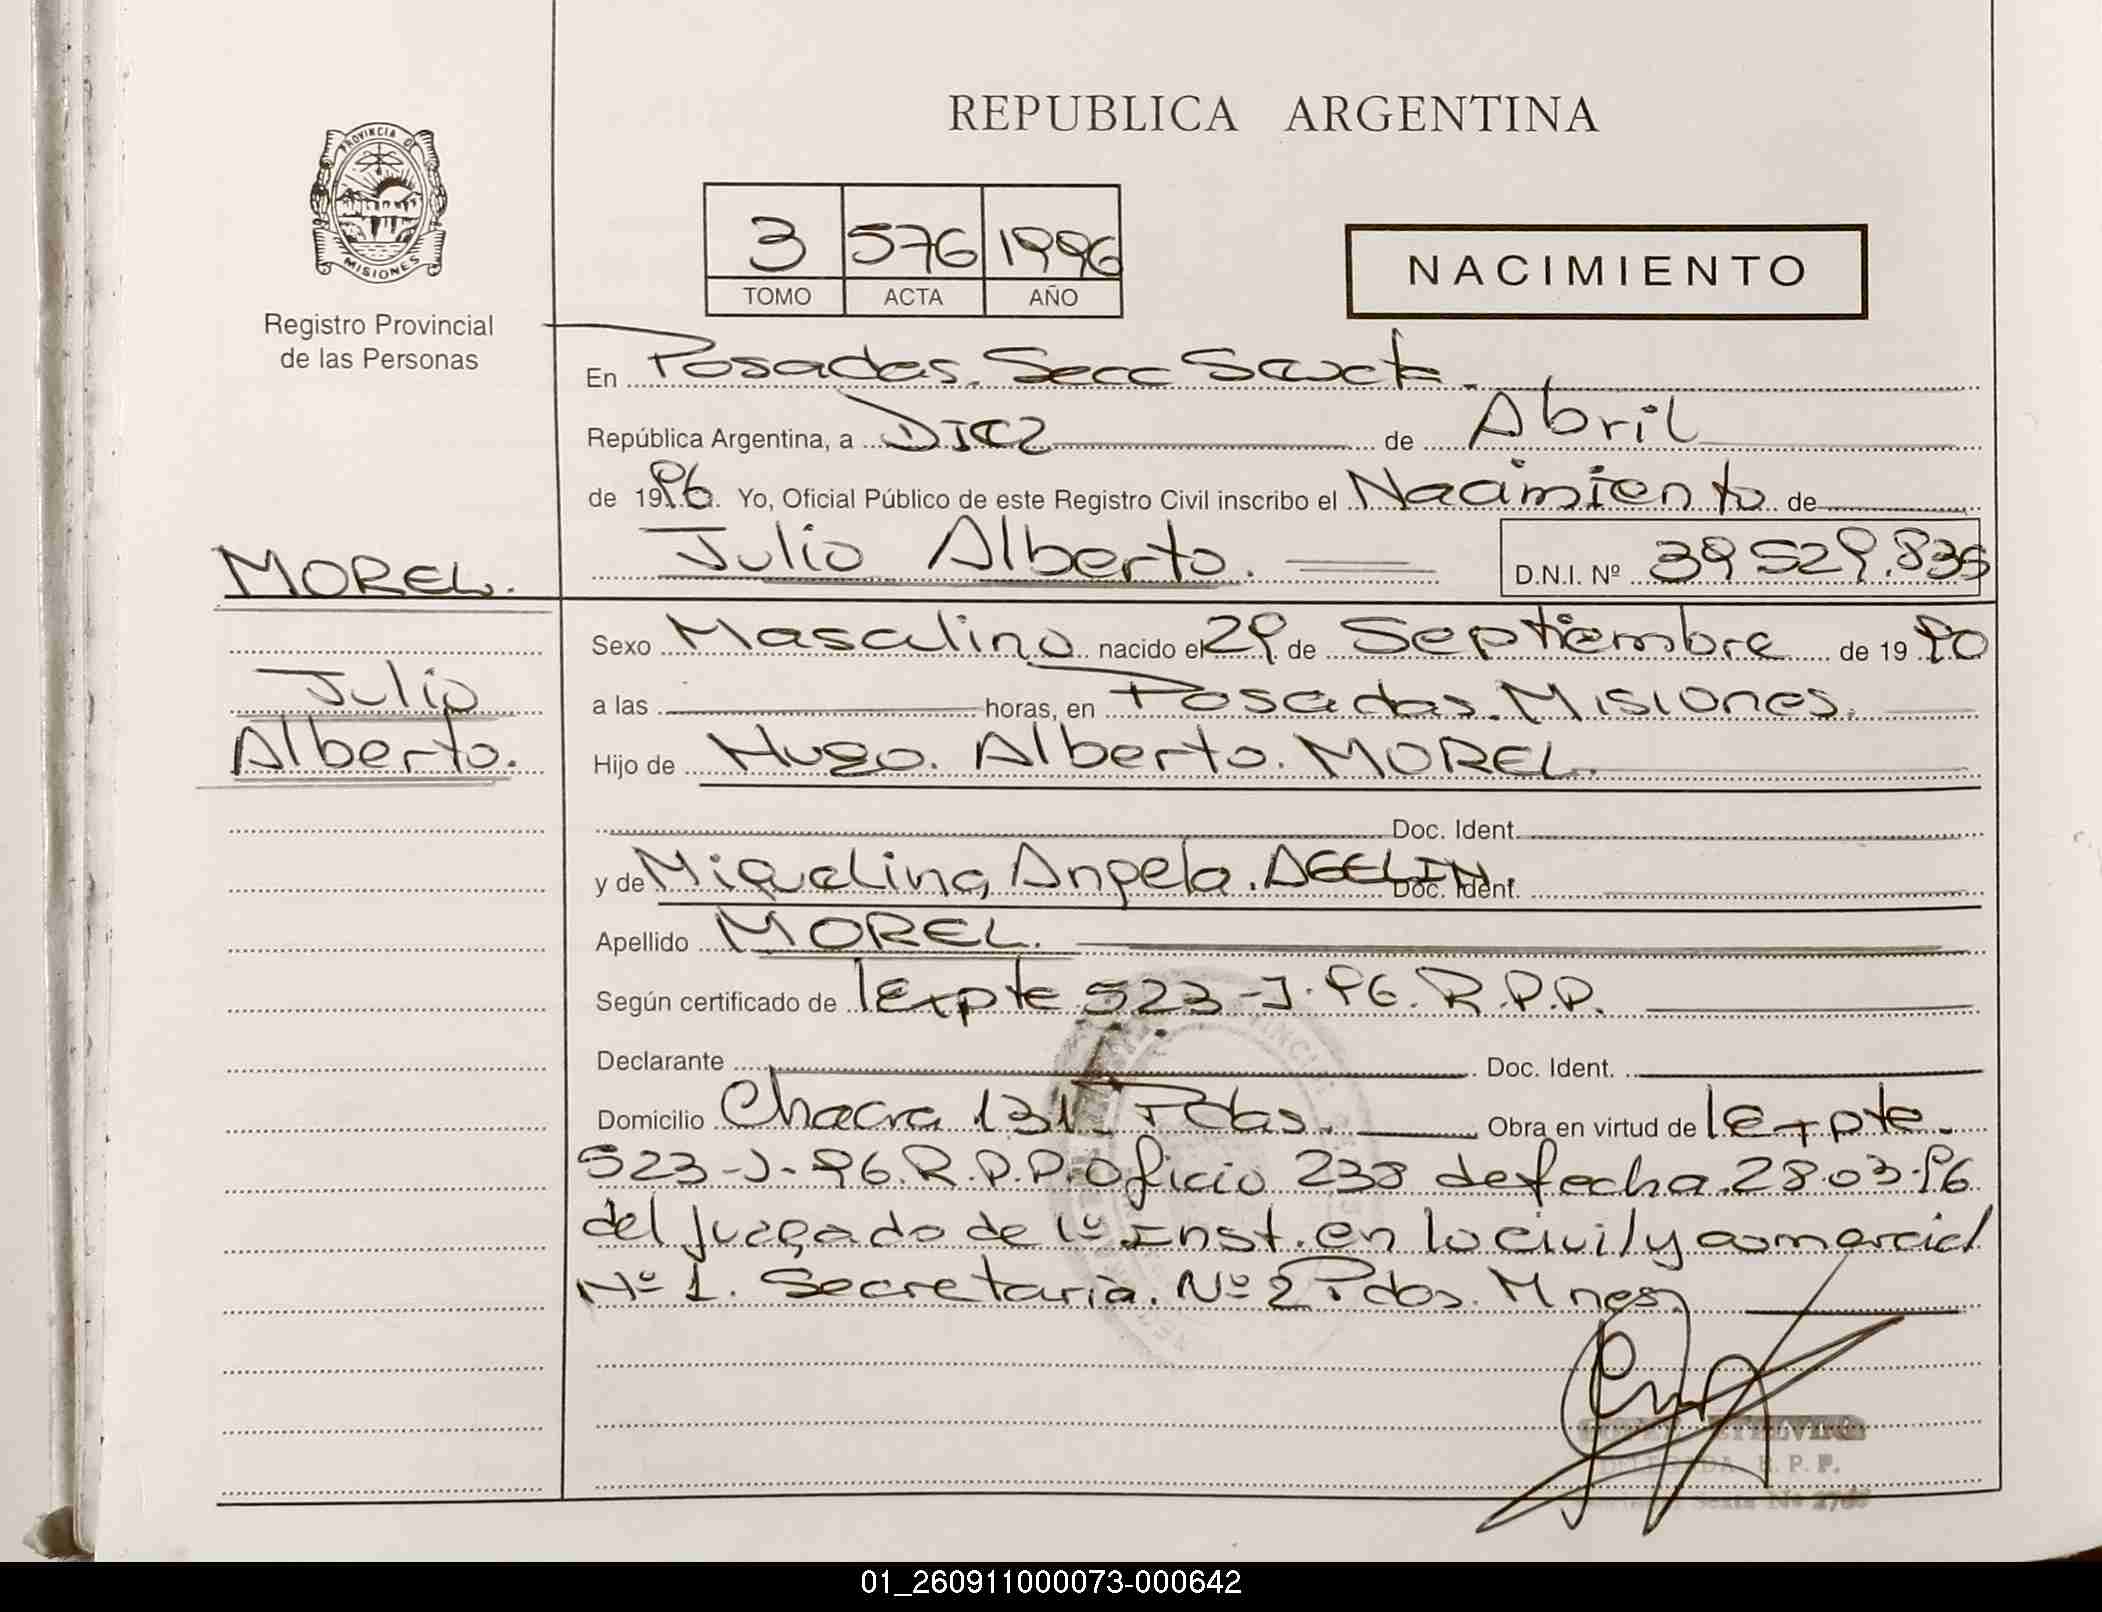 REPUBLICA ARGENTINA
PROVINCIA DE
MISIONES
Registro Provincial
de las Personas
3 576 1996
TOMO ACTA AÑO
NACIMIENTO
En Posadas. Secc Sexta.
República Argentina, a Diez de Abril
de 1996. Yo, Oficial Público de este Registro Civil inscribo el Nacimiento de
MOREL.
Julio Alberto. D.N.I. Nº 39529.835
Julio
Alberto.
Sexo Masculino nacido el 29 de Septiembre de 1990
a las horas, en Posadas. Misiones.
Hijo de Hugo. Alberto. MOREL.
Doc. Ident.
y de Miquelina Angela. AGELIN. Doc. Ident.
Apellido MOREL.
Según certificado de Expte 523-J-96. R.P.P.
Declarante Doc. Ident.
Domicilio Chacra 131 Pdas. Obra en virtud de Expte.
523-J-96. R.P.P. Oficio 238 de fecha 28.03.96
del juzgado de 1º Inst. en lo civil y comercial
Nº 1. Secretaria. Nº 2 Pdas. Mnes.
DELEGADA R. P. P.
Sexta Nº
01_260911000073-000642